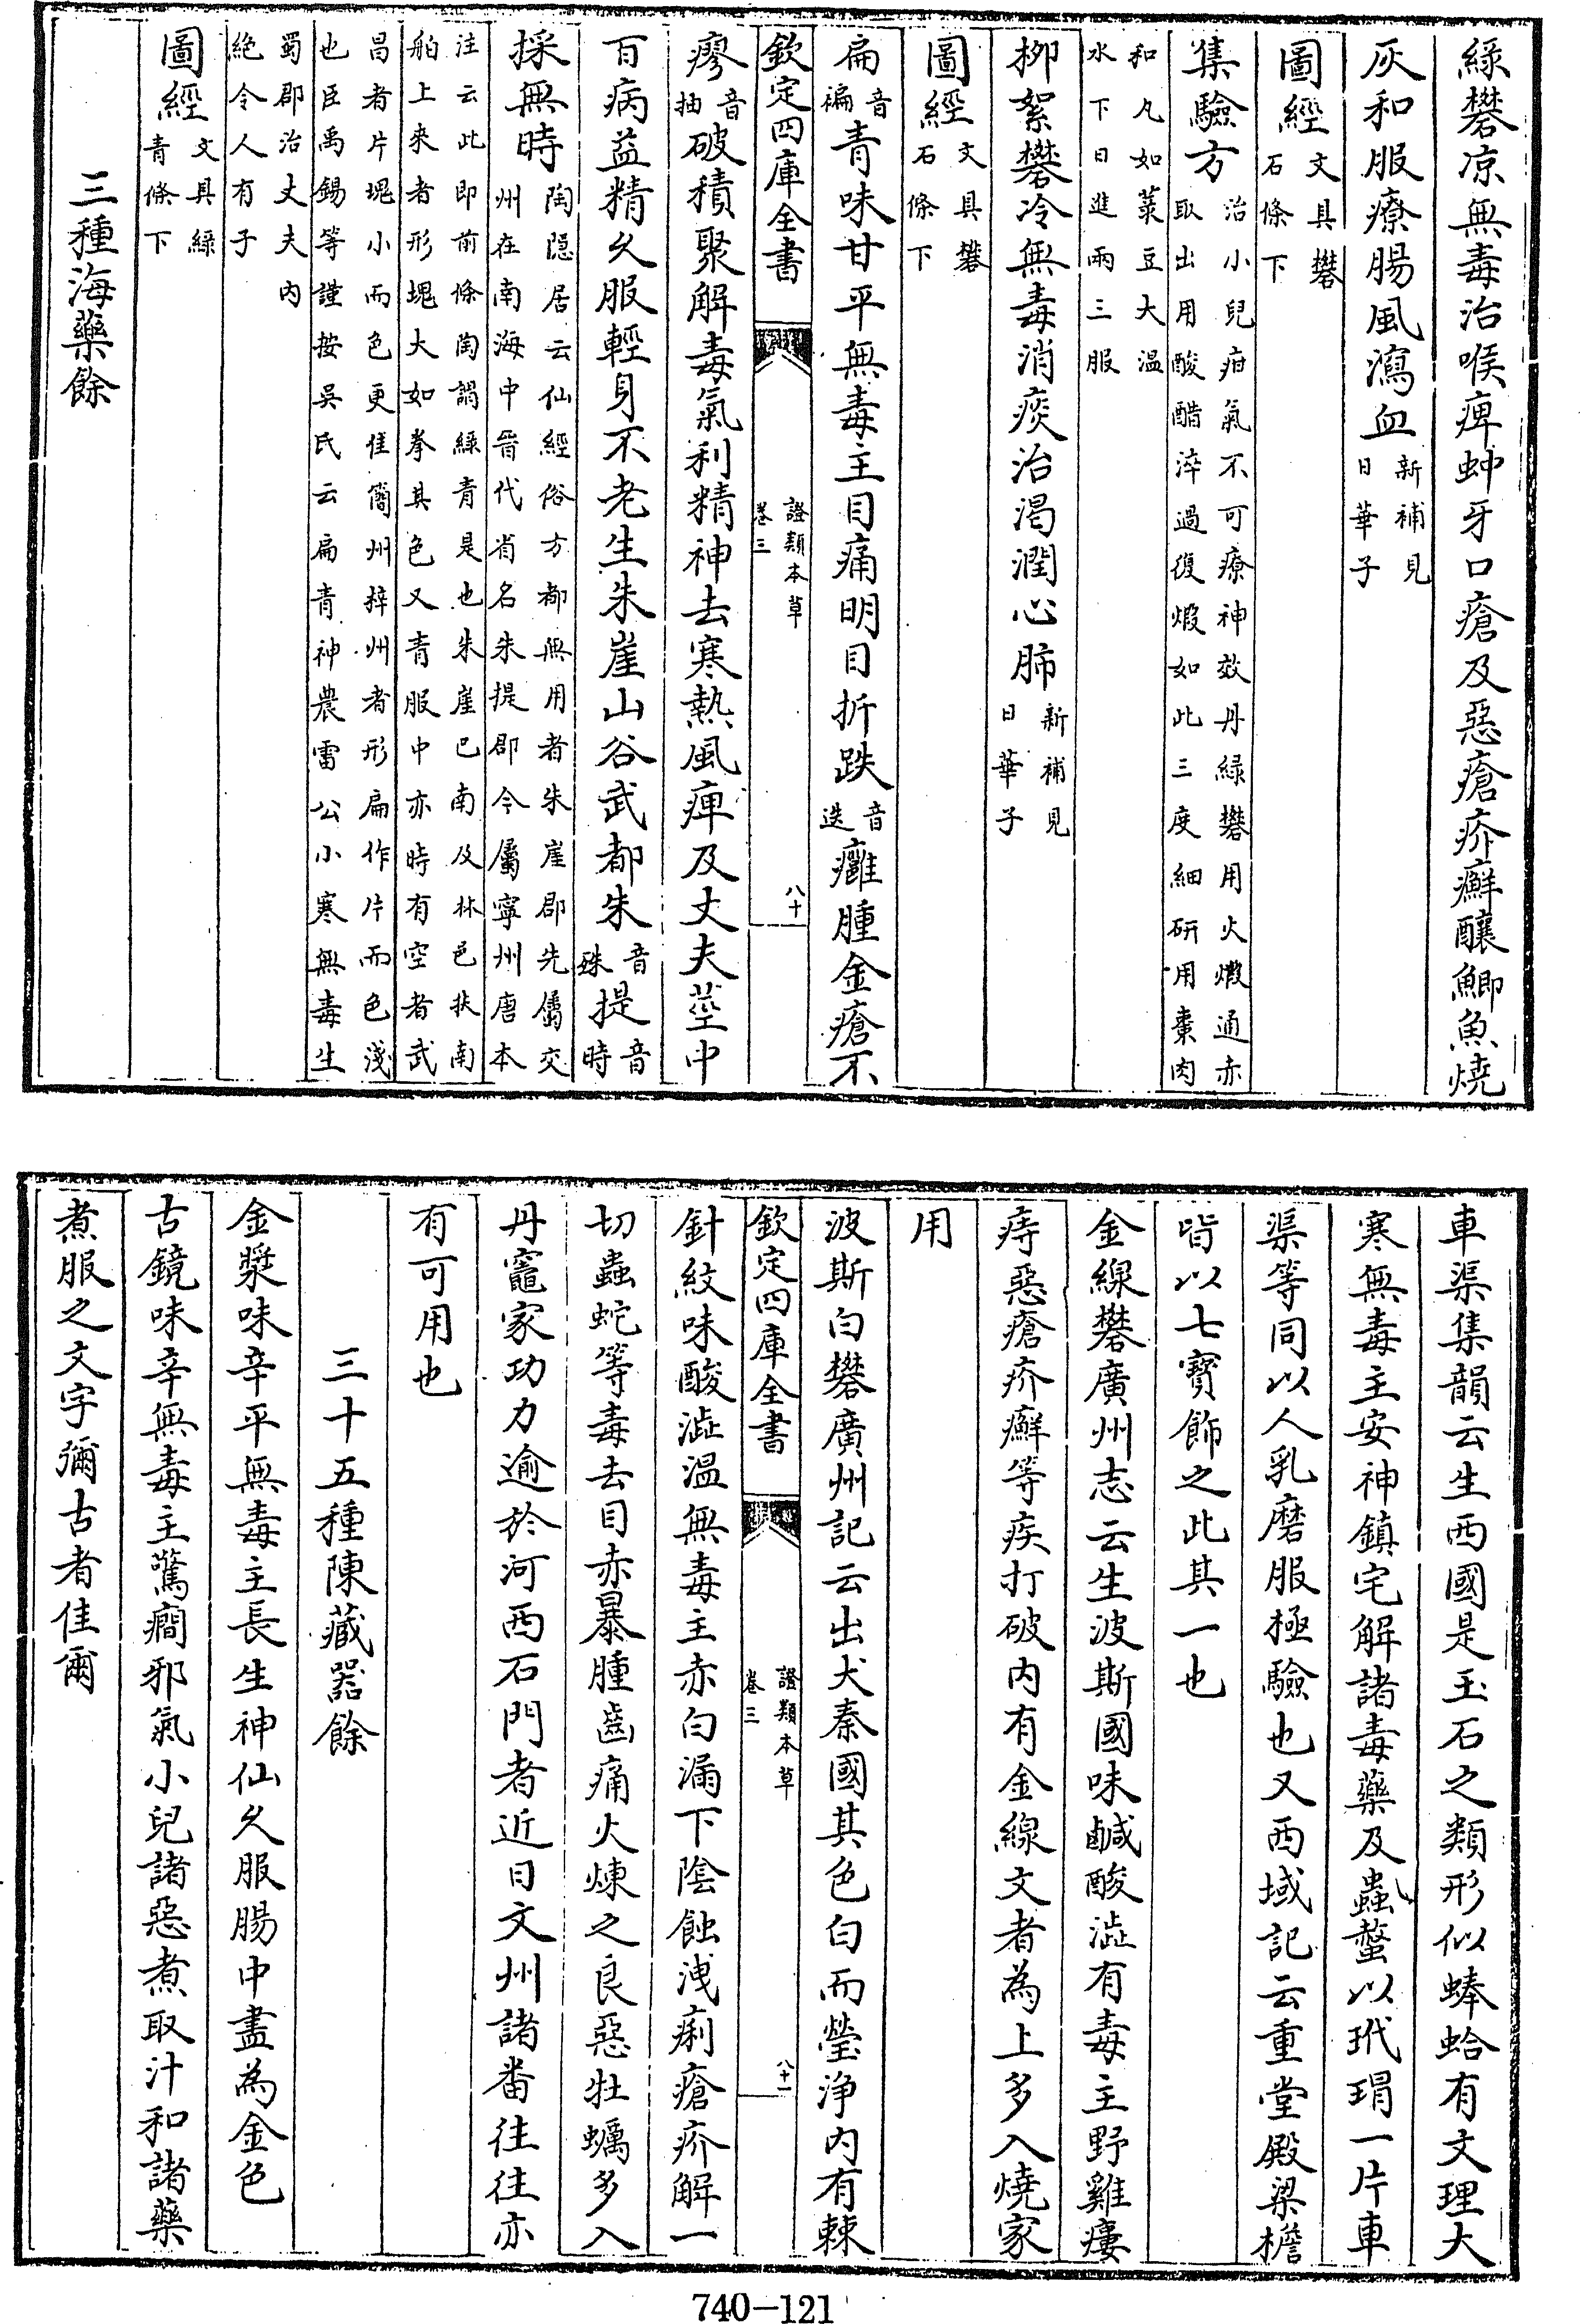 綠礬凉無毒治喉痺蚛牙口瘡及惡瘡疥癬釀鯽魚燒
灰和服療腸風瀉血新補見日華子
圖經文具礬石條下
集驗方治小兒疳氣不可療神效丹綠礬用火煅通赤取出用酸醋淬過復煅如此三度細研用棗肉
和丸如菉豆大温水下日進兩三服
栁絮礬冷無毒消痰治渴潤心肺新補見日華子
圖經文具礬石條下
扁音褊青味甘平無毒主目痛明目折跌音迭癰腫金瘡不
欽定四庫全書 證類本草卷三 八十
瘳音抽破積聚解毒氣利精神去寒熱風痺及丈夫莖中
百病益精久服輕身不老生朱崖山谷武都朱音殊提音時
採無時陶隱居云仙經俗方都無用者朱崖郡先屬交州在南海中晉代省名朱提郡今屬寧州唐本
注云此即前條陶謂綠青是也朱崖巴南及林邑扶南舶上來者形塊大如拳其色又青服中亦時有空者武
昌者片塊小而色更佳簡州梓州者形扁作片而色淺也臣禹錫等謹按吳氏云扁青神農雷公小寒無毒生
蜀郡治丈夫內絶令人有子
圖經文具綠青條下
三種海藥餘
車渠集韻云生西國是玉石之類形似蜯蛤有文理大
寒無毒主安神鎮宅解諸毒藥及蟲螫以玳瑁一片車
渠等同以人乳磨服極驗也又西域記云重堂殿梁檐
皆以七寶飾之此其一也
金線礬廣州志云生波斯國味鹹酸澁有毒主野雞瘻
痔惡瘡疥癬等疾打破内有金線文者為上多入燒家
用
波斯白礬廣州記云出大秦國其色白而瑩浄内有棘
欽定四庫全書 證類本草卷三 八十一
針紋味酸澁温無毒主赤白漏下陰蝕洩痢瘡疥解一
切蟲蛇等毒去目赤暴腫齒痛火煉之良惡牡蠣多入
丹竈家功力逾於河西石門者近日文州諸番徃徃亦
有可用也
三十五種陳藏器餘
金漿味辛平無毒主長生神仙久服腸中盡為金色
古鏡味辛無毒主驚癇邪氣小兒諸惡煮取汁和諸藥
煮服之文字彌古者佳爾
740-121